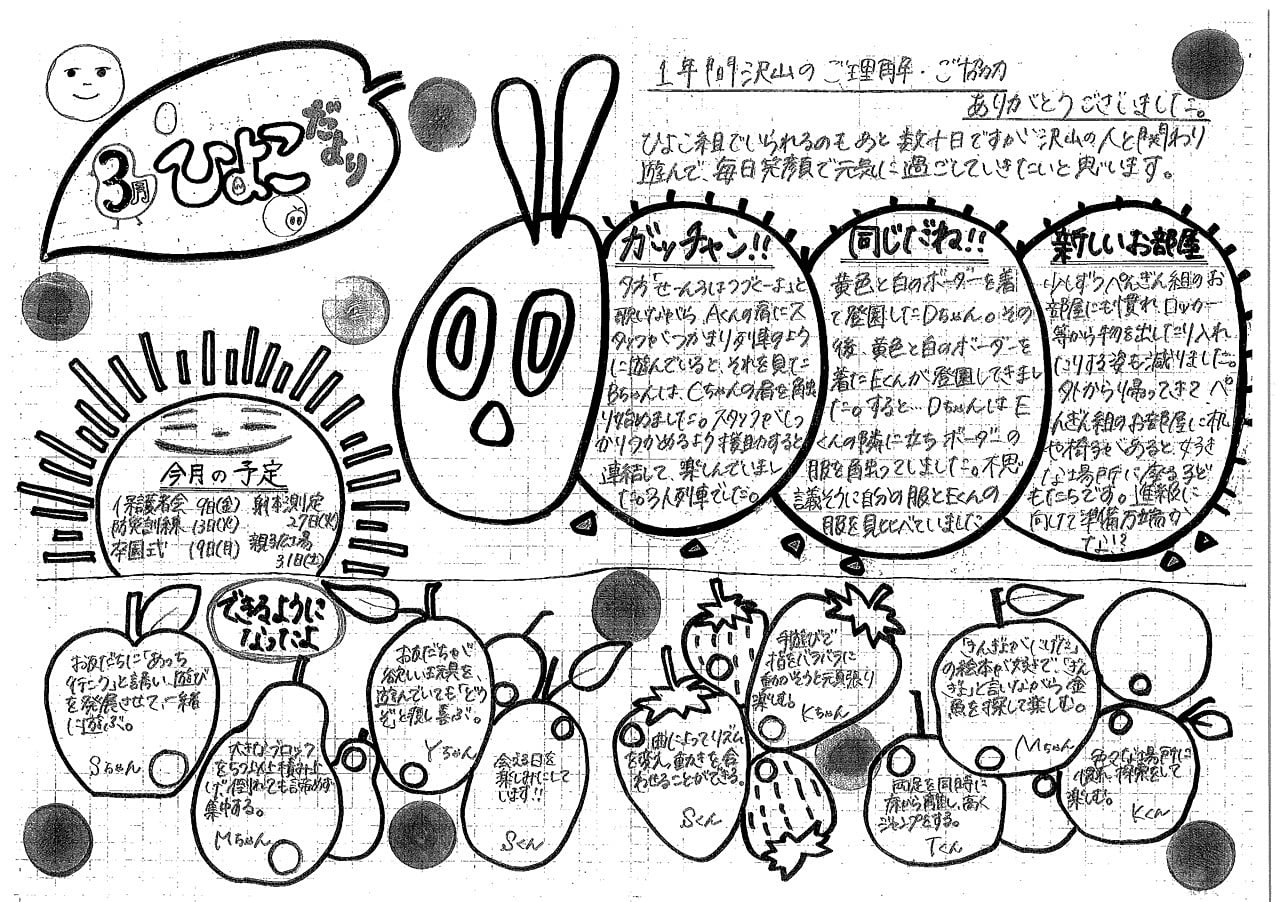 3月
ひよこ
だより
1年間沢山のご理解・ご協力
ありがとうございました。
ひよこ組でいられるのもあと数十日ですが沢山の人と関わり
遊んで、毎日笑顔で元気に過ごしていきたいと思います。
ガッチャン!!
夕方「せーんろはつづくーよ」と
歌いながら、Aくんの肩にス
タッフがつかまり列車のよう
に遊んでいると、それを見た
Bちゃんは、Cちゃんの肩を触
り始めました。スタッフがしっ
かりつかめるよう援助すると
連結して、楽しんでいまし
た。3人列車でした。
同じだね!!
黄色と白のボーダーを着
て登園したDちゃん。その
後、黄色と白のボーダーを
着たEくんが登園してきまし
た。すると…DちゃんはE
くんの隣に立ちボーダーの
服を触ってしました。不思
議そうに自分の服とEくんの
服を見比べていました
新しいお部屋
少しずつぺんぎん組のお
部屋にも慣れ、ロッカー
等から物を出したり入れ
たりする姿も減りました。
外から帰ってきて ぺ
んぎん組のお部屋に机
や椅子があると、好き
な場所に座る子ど
もたちです。進級に
向けて準備万端か
な!?
今月の予定
保護者会 9日(金)
防災訓練 13日(火)
卒園式 19日(月)
身体測定
27日(火)
親子広場
31日(土)
できるように
なったよ
お友だちに「あっち
行こう」と誘い、遊び
を発展させて、一緒
に遊ぶ。
Sちゃん
大きなブロック
を5つ以上積み上
げ、倒れても諦めず
集中する。
Mちゃん
お友だちが
欲しい玩具を、
遊んでいても「どう
ぞ」と渡し喜ぶ。
Yちゃん
会える日を
楽しみにして
います!!
Sくん
曲によってリズム
を変え、動きを合
わせることができる。
Sくん
手遊びで
指をバラバラに
動かそうと頑張り
楽しむ。
Kちゃん
「きんぎょがにげた」
の絵本が大好きで、「きん
ぎょ」と言いながら金
魚を探して楽しむ。
Mちゃん
両足を同時に
床から離し、高く
ジャンプをする。
Tくん
色々な場所に
探索をして
楽しむ。
Kくん